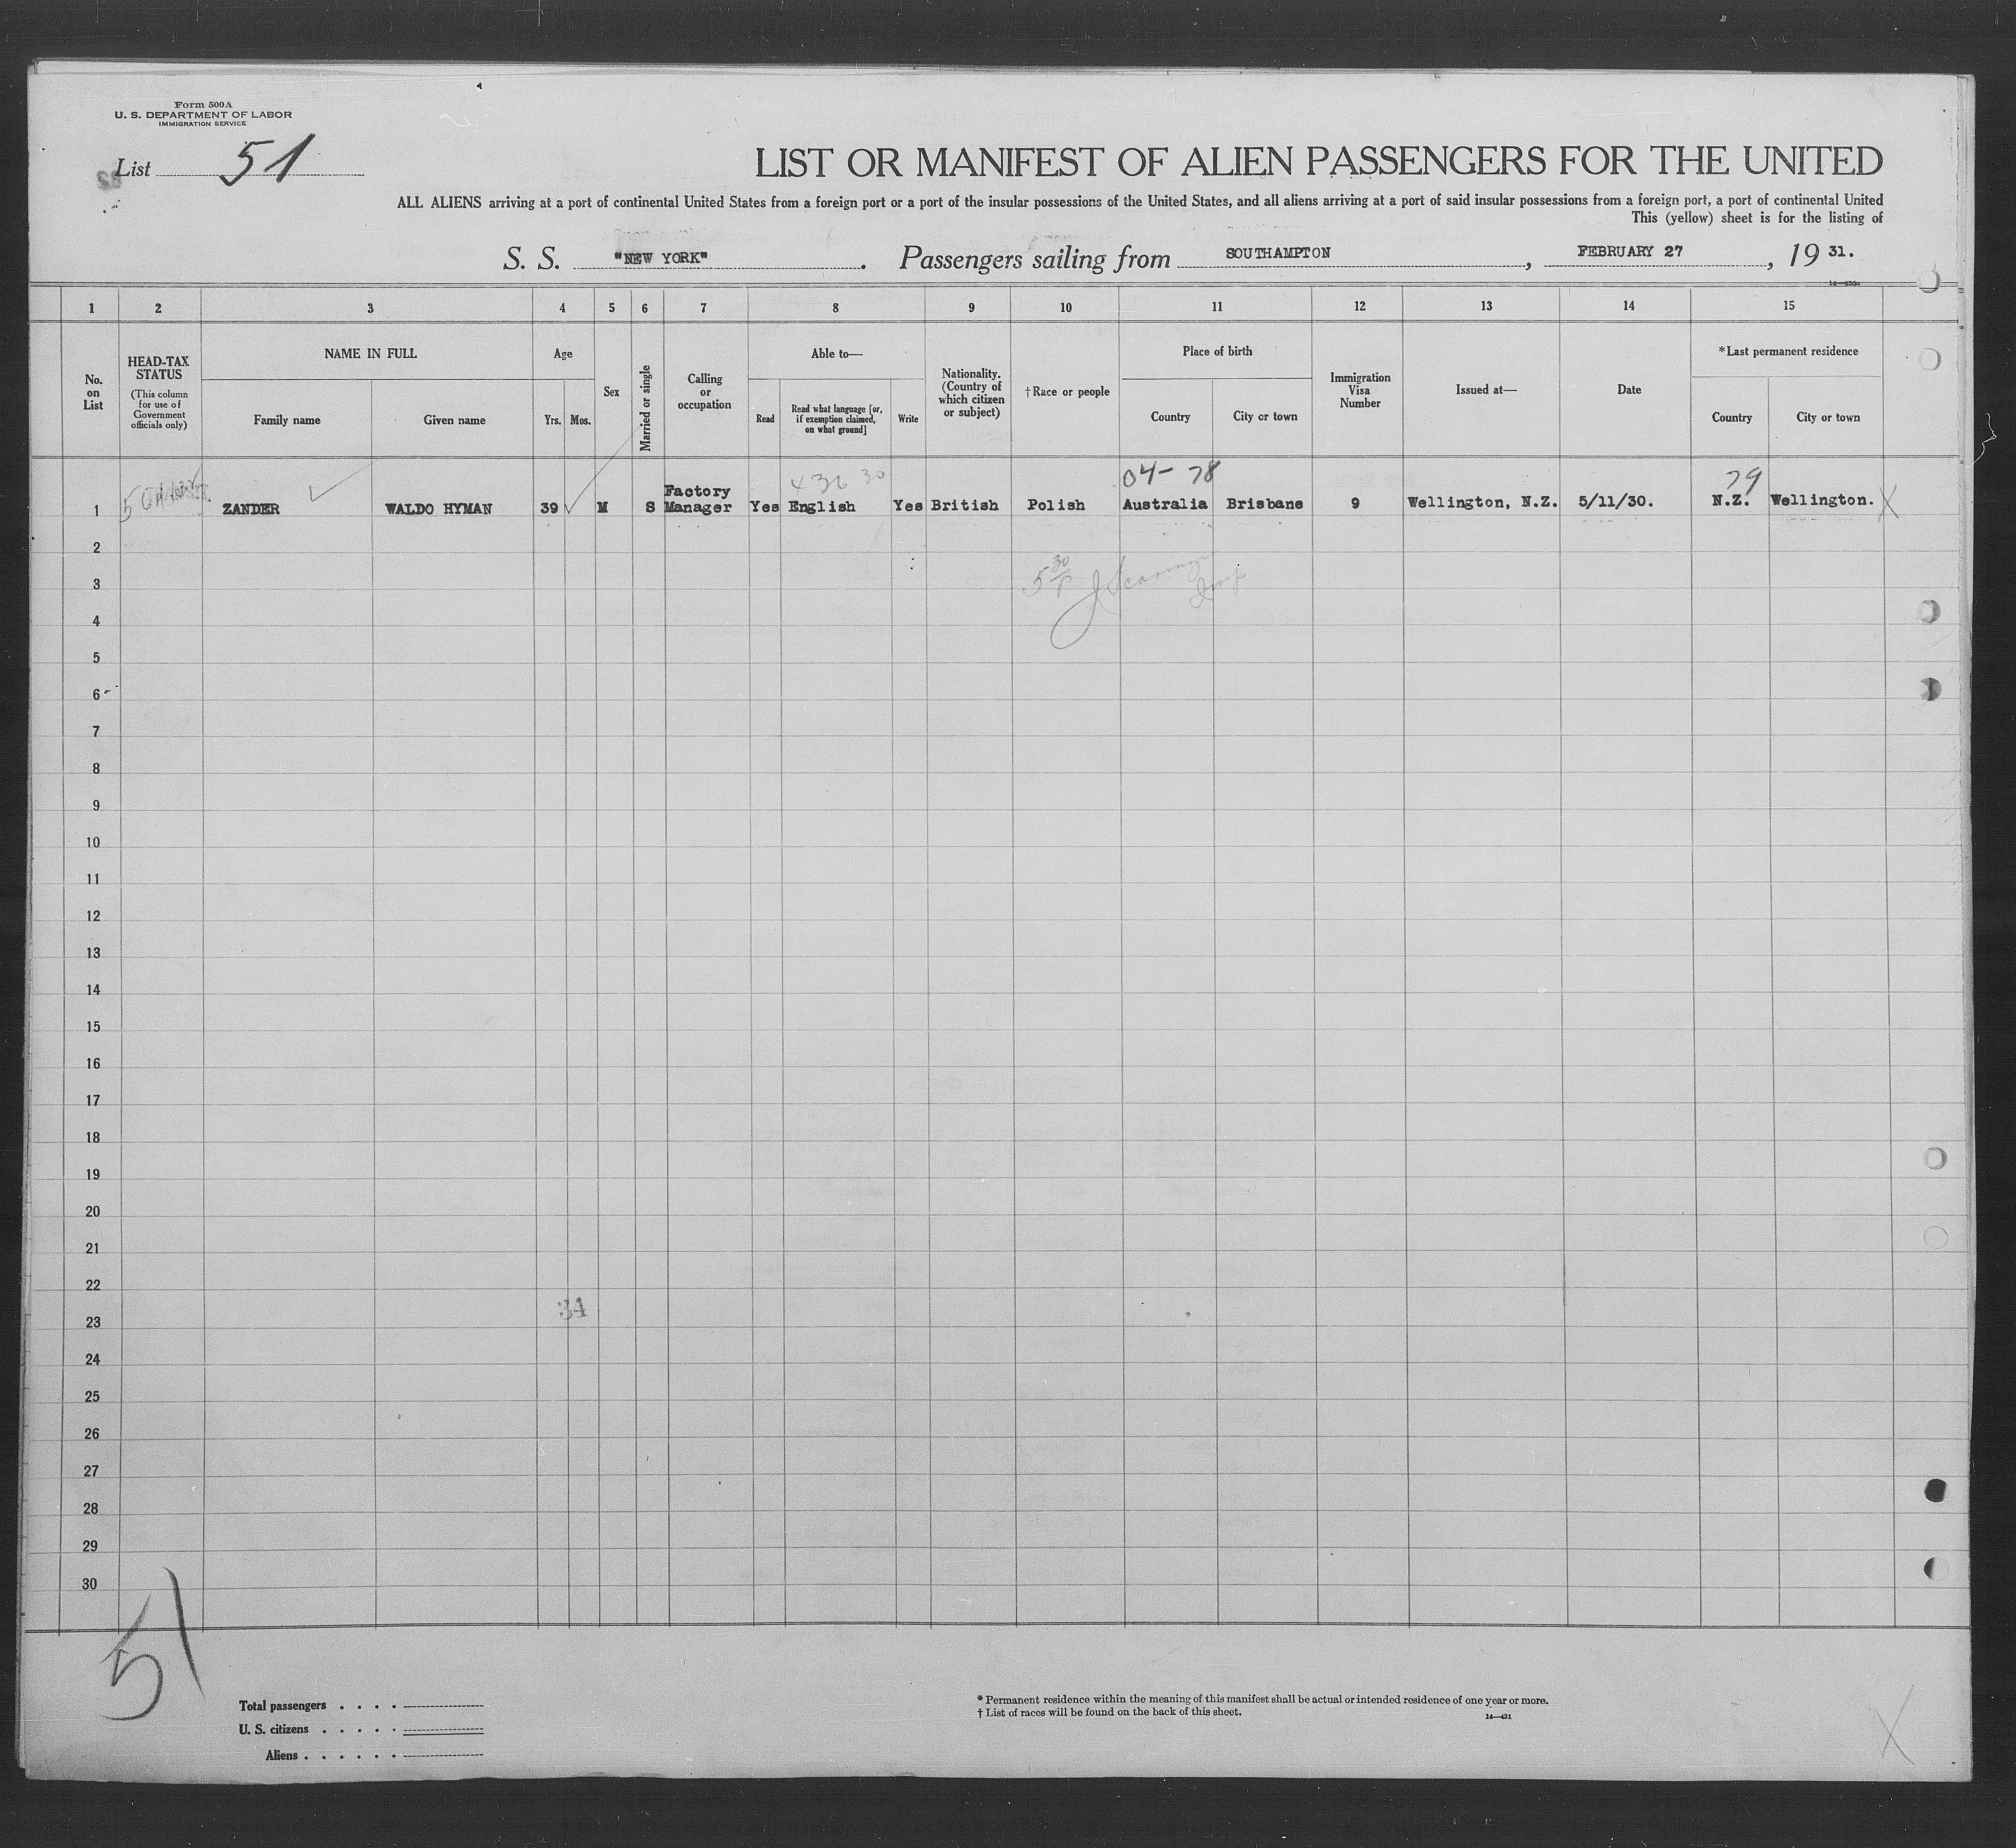 Form 500A
U. S. DEPARTMENT OF LABOR
IMMIGRATION SERVICE
List 51
LIST OR MANIFEST OF ALIEN PASSENGERS FOR THE UNITED
ALL ALIENS arriving at a port of continental United States from a foreign port or a port of the insular possessions of the United States, and all aliens arriving at a port of said insular possessions from a foreign port, a port of continental United
This (yellow) sheet is for the listing of
S. S. "NEW YORK". Passengers sailing from SOUTHAMPTON, FEBRUARY 27, 19 31.
1 2 3 4 5 6 7 8 9 10 11 12 13 14 15
No. on List
HEAD-TAX STATUS
(This column for use of Government officials only)
NAME IN FULL
Family name
Given name
Age
Yrs. Mos.
Sex
Married or single
Calling or occupation
Able to—
Read
Read what language [or, if exemption claimed, on what ground]
Write
Nationality. (Country of which citizen or subject)
†Race or people
Place of birth
Country
City or town
Immigration Visa Number
Issued at—
Date
*Last permanent residence
Country
City or town
04- 78
79
1 ZANDER WALDO HYMAN 39 M S Factory Manager Yes English Yes British Polish Australia Brisbane 9 Wellington, N.Z. 5/11/30. N.Z. Wellington. X
2
3
4
5
6
7
8
9
10
11
12
13
14
15
16
17
18
19
20
21
22
34
23
24
25
26
27
28
29
30
51
Total passengers . . . .
U. S. citizens . . . . .
Aliens . . . . . .
* Permanent residence within the meaning of this manifest shall be actual or intended residence of one year or more.
† List of races will be found on the back of this sheet.
14—431
X